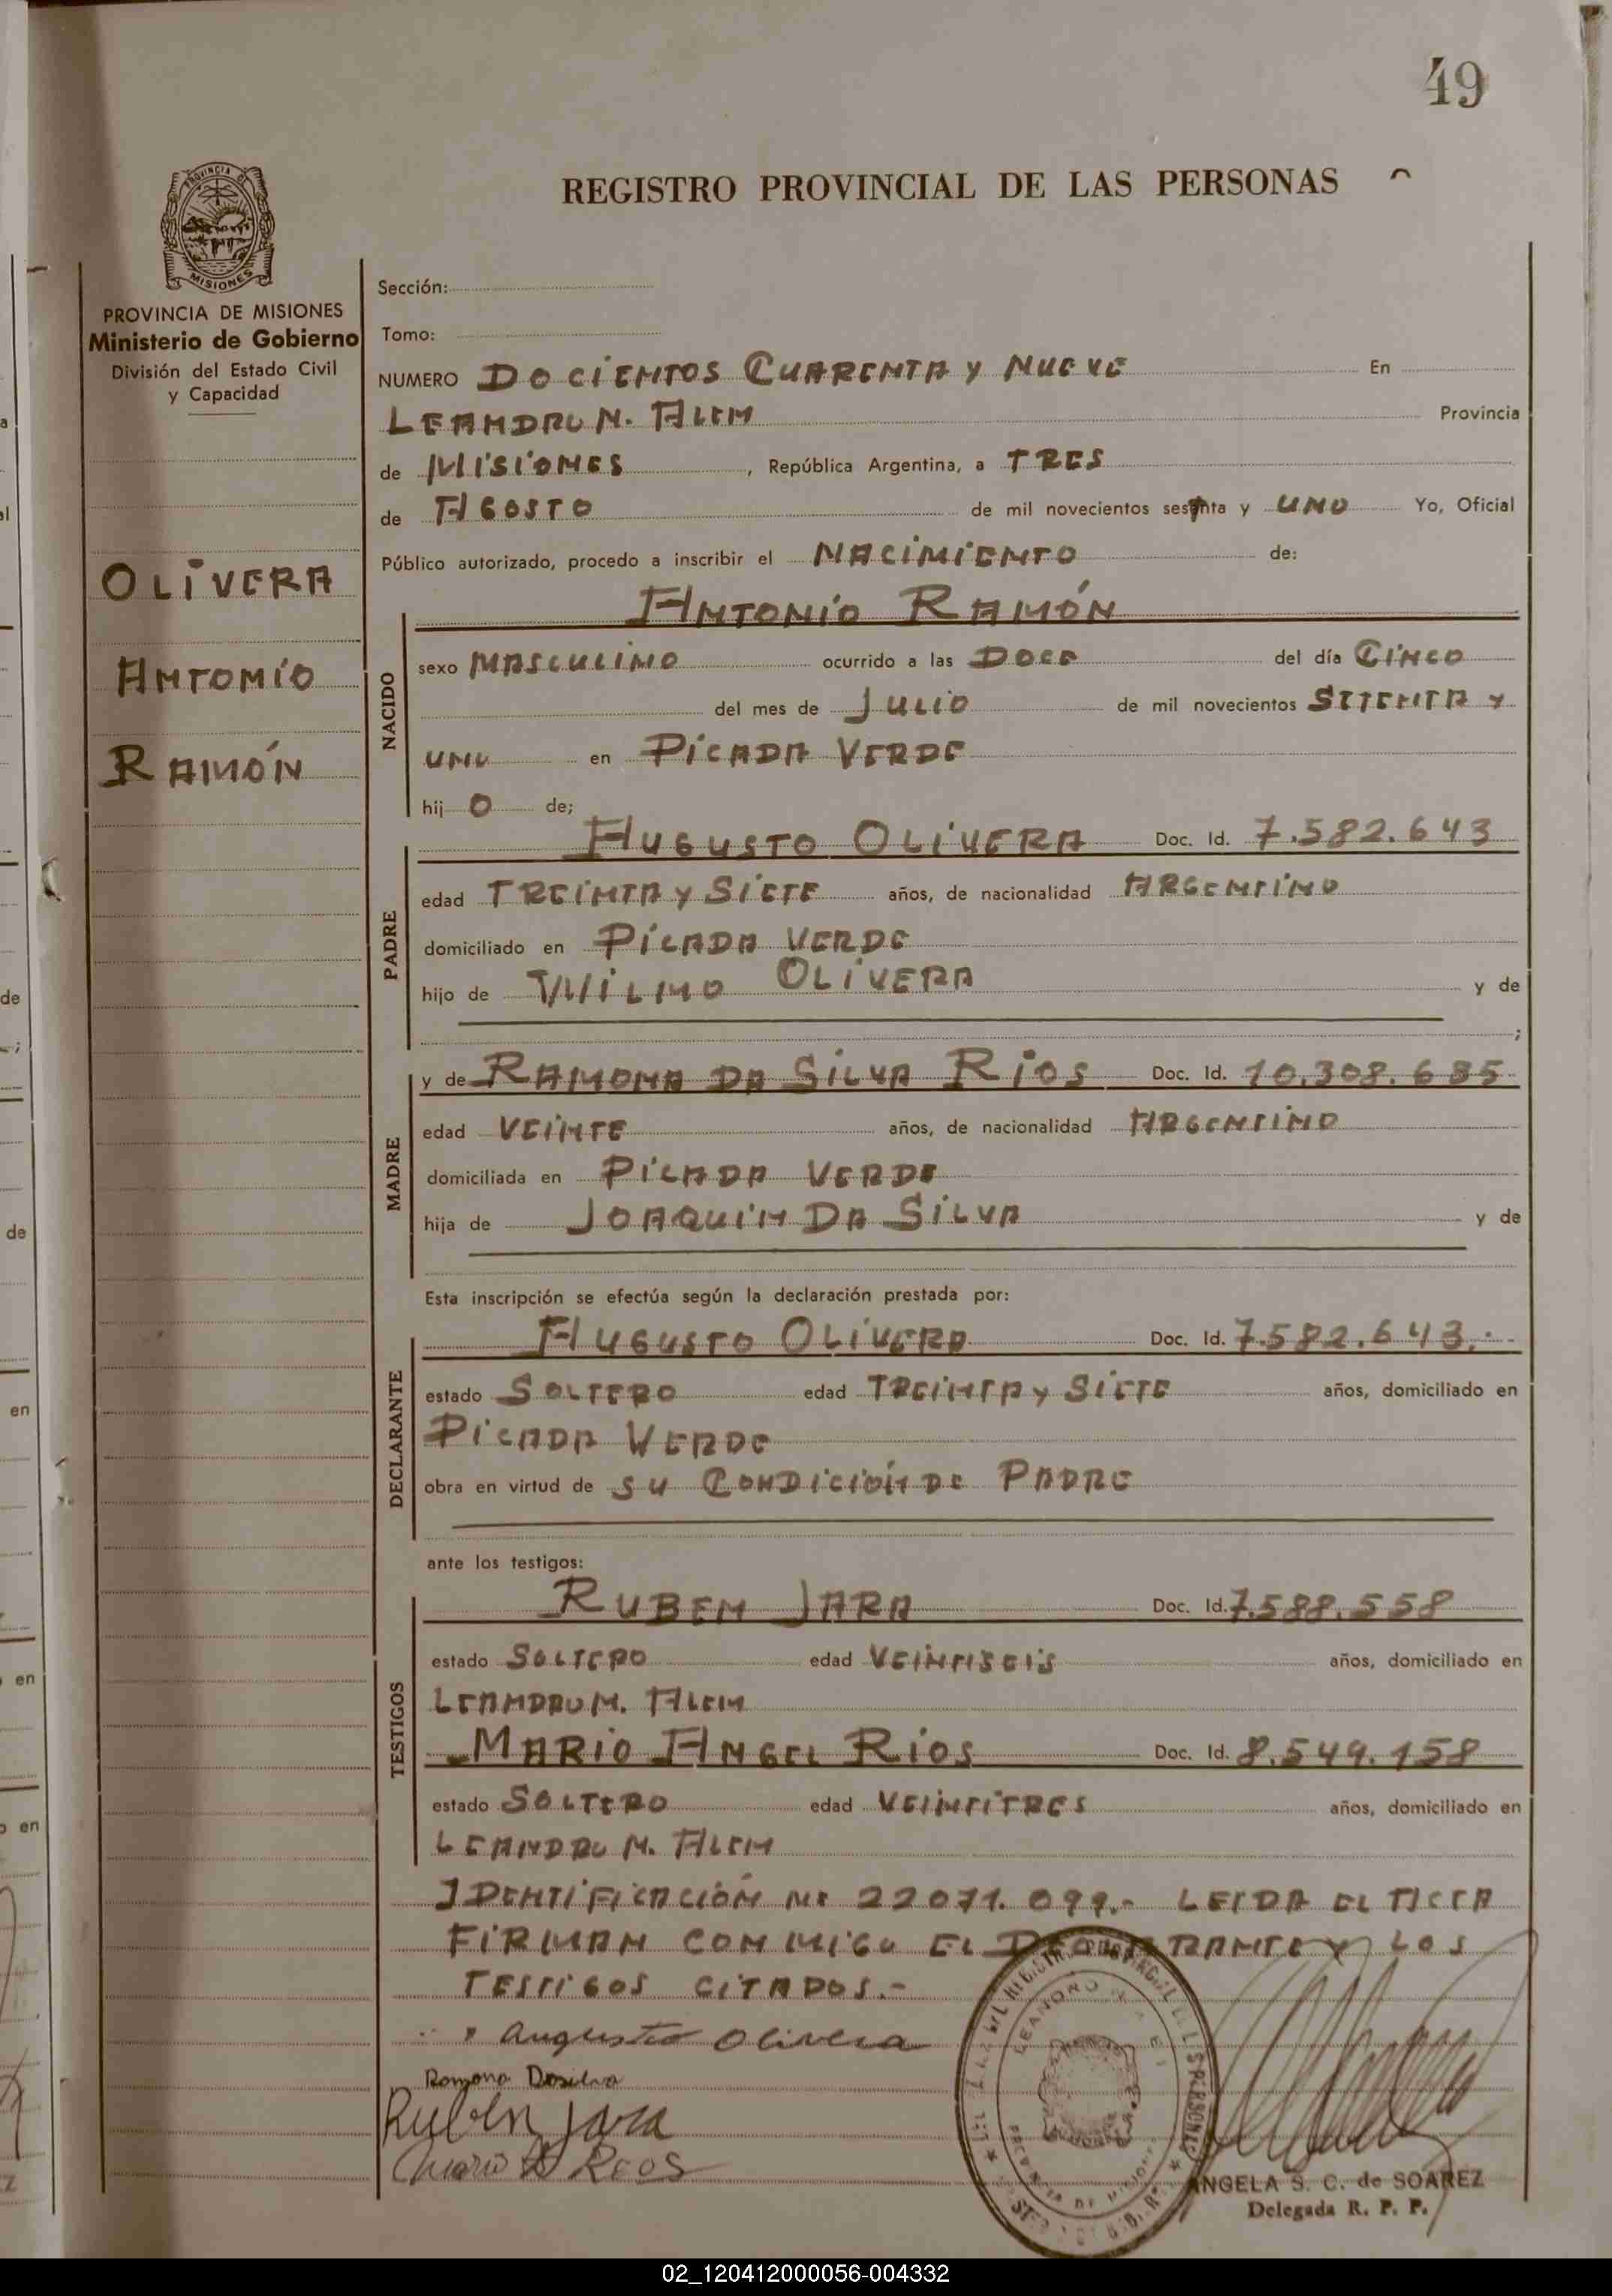 49
REGISTRO PROVINCIAL DE LAS PERSONAS
PROVINCIA DE
MISIONES
PROVINCIA DE MISIONES
Ministerio de Gobierno
División del Estado Civil
y Capacidad
OLIVERA
ANTONIO
RAMÓN
Sección:
Tomo:
NUMERO DOCIENTOS CUARENTA Y NUEVE En
LEANDRO N. ALEM Provincia
de MISIONES, República Argentina, a TRES
de AGOSTO de mil novecientos setenta y UNO Yo, Oficial
Público autorizado, procedo a inscribir el NACIMIENTO de:
ANTONIO RAMÓN
NACIDO
sexo MASCULINO ocurrido a las DOCE del día CINCO
del mes de JULIO de mil novecientos SETENTA Y
UNO en PICADA VERDE
hij O de;
AUGUSTO OLIVERA Doc. Id. 7.582.643
PADRE
edad TREINTA Y SIETE años, de nacionalidad ARGENTINO
domiciliado en PICADA VERDE
hijo de OLIVERA y de
;
y de RAMONA DA SILVA RIOS Doc. Id. 10.308.685
MADRE
edad VEINTE años, de nacionalidad ARGENTINO
domiciliada en PICADA VERDE
hija de JOAQUIN DA SILVA y de
Esta inscripción se efectúa según la declaración prestada por:
AUGUSTO OLIVERA Doc. Id. 7.582.643.-
DECLARANTE
estado SOLTERO edad TREINTA Y SIETE años, domiciliado en
PICADA VERDE
obra en virtud de SU CONDICIÓN DE PADRE
ante los testigos:
RUBEN JARA Doc. Id. 7.588.558
TESTIGOS
estado SOLTERO edad VEINTISEIS años, domiciliado en
LEANDRO N. ALEM
MARIO ANGEL RIOS Doc. Id. 8.549.158
estado SOLTERO edad VEINTITRES años, domiciliado en
LEANDRO N. ALEM
IDENTIFICACIÓN Nº 22071.099.- LEIDA EL ACTA
FIRMAN CONMIGO EL DECLARANTE Y LOS
TESTIGOS CITADOS.-
Augusto Olivera
Ramona Dasilva
Ruben Jara
Mario A Rios
ANGELA S. C. de SOAREZ
Delegada R. P. P.
02_120412000056-004332